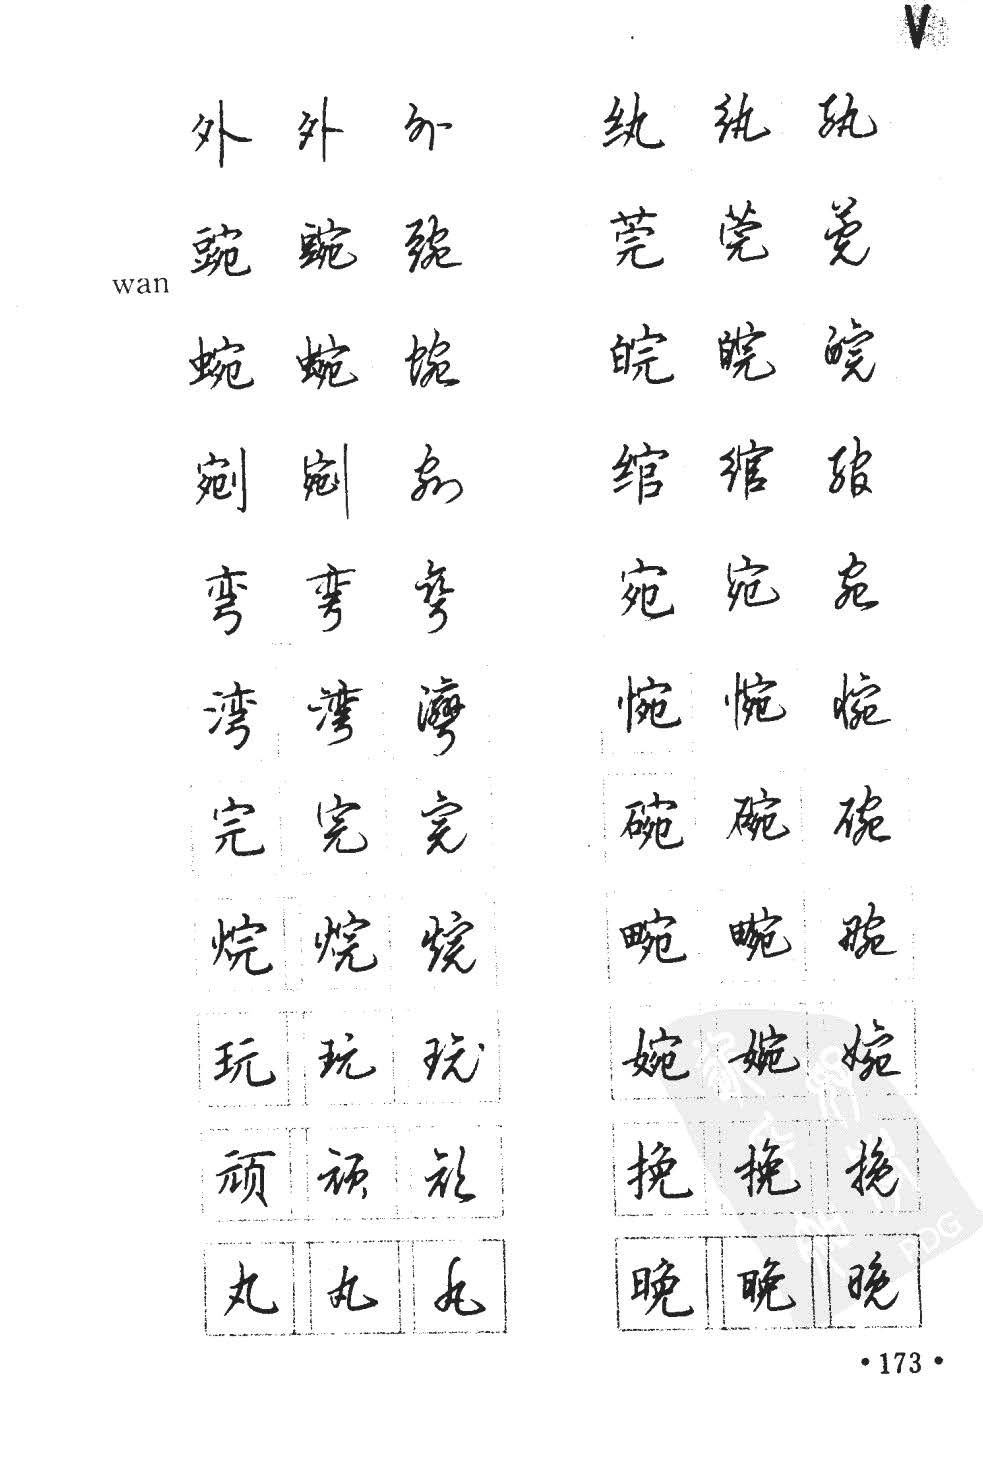 外 外 外 纨 纨 纨
豌 豌 豌 莞 莞 莞
wan
蜿 蜿 蜿 皖 皖 皖
剜 剜 剜 绾 绾 绾
弯 弯 弯 宛 宛 宛
湾 湾 灣 惋 惋 惋
完 完 完 碗 碗 碗
烷 烷 烷 畹 畹 畹
玩 玩 玩 婉 婉 婉
顽 顽 顽 挽 挽 挽
丸 丸 丸 晚 晚 晚
PDG
·173·